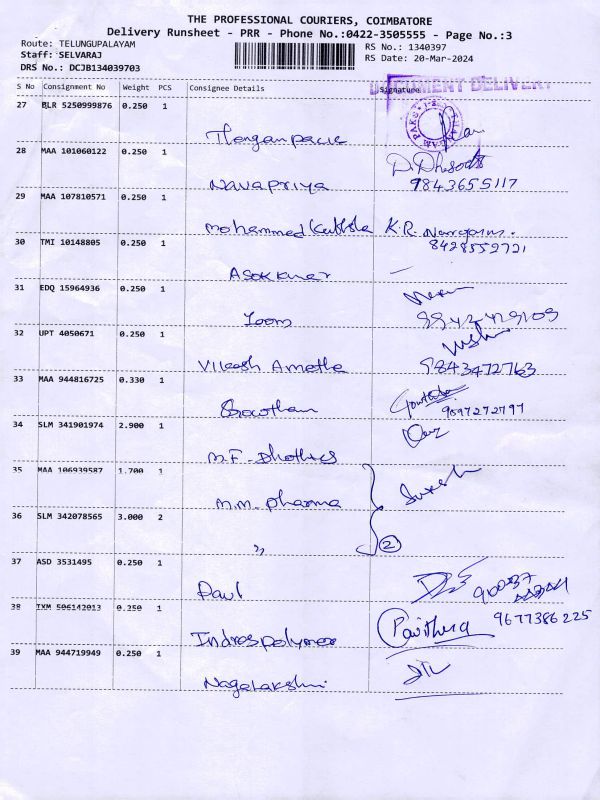 THE PROFESSIONAL COURIERS, COIMBATORE
Delivery Runsheet - PRR - Phone No.:0422-3505555 - Page No.:3
Route: TELUNGUPALAYAM
RS No.: 1340397
Staff: SELVARAJ
RS Date: 20-Mar-2024
DRS No.: DCJB134039703
S No Consignment No Weight PCS Consignee Details Signature
DOCUMENT DELIVERY
27 BLR 5250999876 0.250 1
28 MAA 101060122 0.250 1
Navapriya 9843655117
29 MAA 107810571 0.250 1
Mohammed K.R.
30 TMI 10148805 0.250 1
8428552721
Asokkumar
31 EDQ 15964936 0.250 1
Zoom
32 UPT 4050671 0.250 1
9843472763
33 MAA 944816725 0.330 1
Gowtham 9597272797
34 SLM 341901974 2.900 1
M.F.
35 MAA 106939587 1.700 1
M.M. Pharma Suresh
36 SLM 342078565 3.000 2
" 2
37 ASD 3531495 0.250 1
Paul
38 IXM 506142013 0.250 1
Pavithra 9677386225
39 MAA 944719949 0.250 1
Nagalakshmi